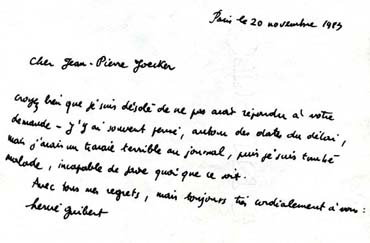 Paris le 20 novembre 1983
Cher Jean-Pierre Joecker
croyez bien que je suis désolé de ne pas avoir répondu à votre
demande - J'y ai souvent pensé, autour des dates du délai,
mais j'avais un travail terrible au journal, puis je suis tombé
malade, incapable de faire quoi que ce soit.
Avec tous mes regrets, mais toujours très cordialement à vous:
hervé guibert